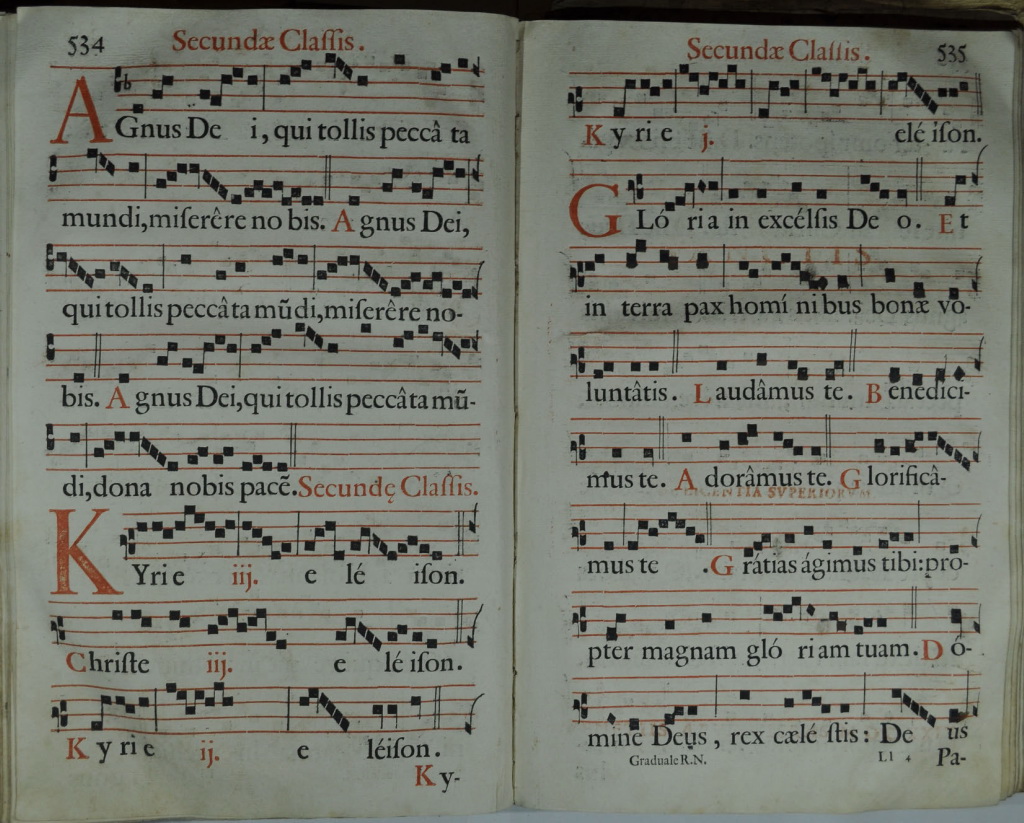 534
Secundæ Claſſis.
AGnus De i, qui tollis peccâ ta
mundi, miſerêre no bis. A gnus Dei,
qui tollis peccâta mũdi, miſerêre no-
bis. A gnus Dei, qui tollis peccâta mũ-
di, dona nobis pacẽ. Secundę Claſſis.
KYrie iij. e lé iſon.
Chriſte iij. e lé iſon.
Kyrie ij. e léiſon.
Ky-
Secundæ Claſſis.
535
Kyrie j. elé iſon.
GLó ria in excélſis De o. Et
in terra pax homí nibus bonæ vo-
luntâtis. Laudâmus te. Benedíci-
mus te. Adorâmus te. Glorificâ-
mus te. Grátias ágimus tibi: pro-
pter magnam gló riam tuam. Dó-
mine Deus, rex cælé ſtis: De us
Graduale R.N.
Ll 4
Pa-